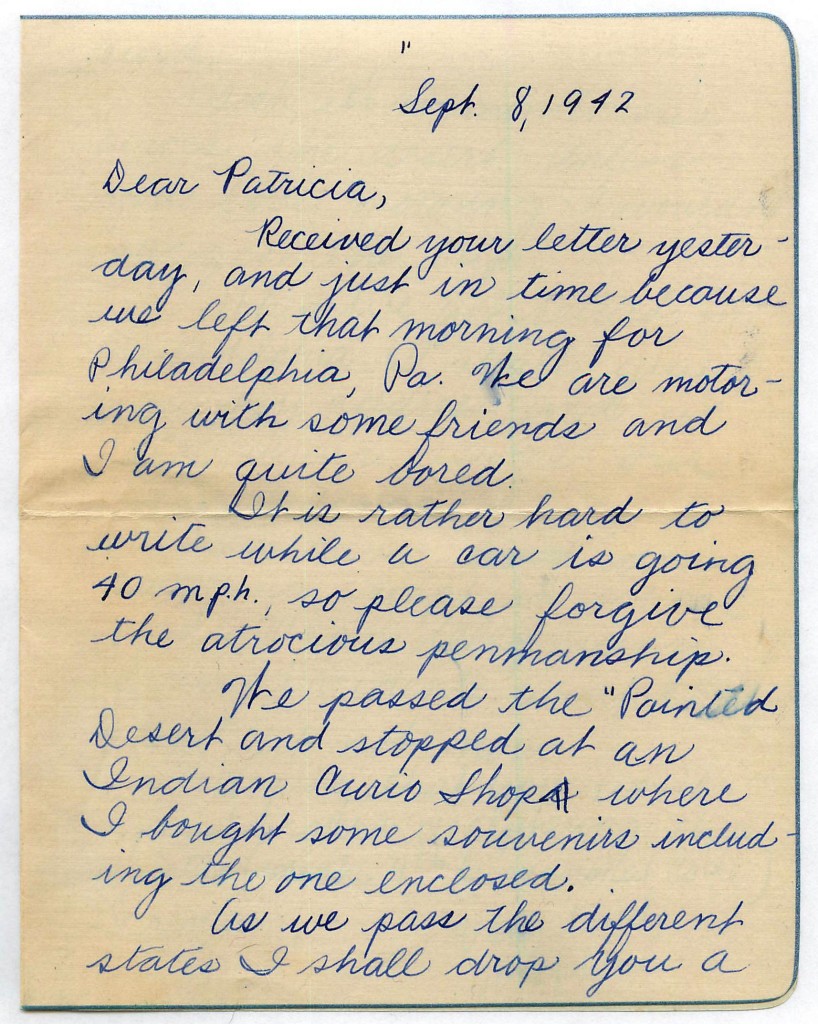 "
Sept. 8, 1942
Dear Patricia,
Received your letter yester-
day, and just in time because
we left that morning for
Philadelphia, Pa. We are motor-
ing with some friends and
I am quite bored.
It is rather hard to
write while a car is going
40 m.p.h., so please forgive
the atrocious penmanship.
We passed the "Painted
Desert and stopped at an
Indian Curio Shop where
I bought some souvenirs includ-
ing the one enclosed.
As we pass the different
states I shall drop you a